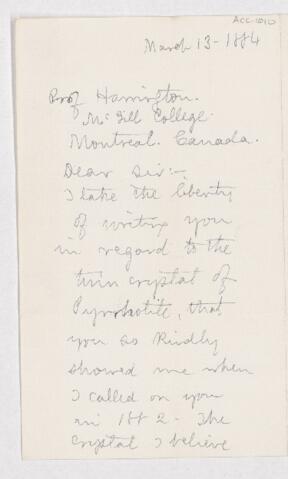 ACC-1010
March 13-1884
Prof Harrington.
McGill College.
Montreal. Canada.
Dear Sir:-
I take the liberty
of writing you
in regard to the
twin crystal of
Pyrrhotite, that
you so kindly
showed me when
I called on you
in 1882- The
crystal I believe